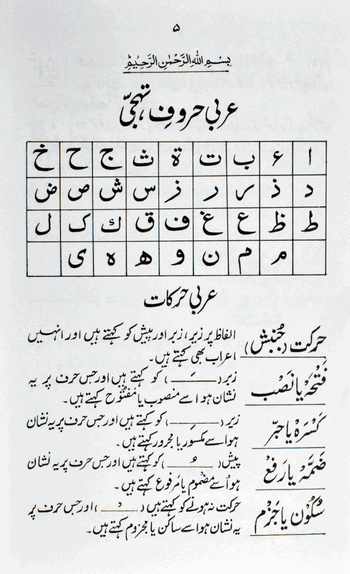 ۵
بِسْمِ اللهِ الرَّحْمٰنِ الرَّحِيْمِ
عربی حروفِ تہجّی
ا ء ب ت ة ث ج ح خ
د ذ ر ر ز س ش ص ض
ط ظ ع غ ف ق ك ک ل
م م ن و ه ہ ی
عربی حرکات
حرکت (جُنبش) الفاظ پر زیر، زبر اور پیش کو کہتے ہیں اور انہیں
اعراب بھی کہتے ہیں۔
فَتْحَہ یا نَصْب زبر (ـَـ) کو کہتے ہیں اور جس حرف پر یہ
نشان ہو اسے منصوب یا مفتوح کہتے ہیں۔
کَسْرَہ یا جَرّ زیر (ـِـ) کو کہتے ہیں اور جس حرف پر یہ نشان
ہو اسے مکسور یا مجرور کہتے ہیں۔
ضَمَّہ یا رَفع پیش (ـُـ) کو کہتے ہیں اور جس حرف پر یہ نشان
ہو اُسے مضموم یا مرفوع کہتے ہیں۔
سُکُوْن یا جَزم حرکت نہ ہونے کو کہتے ہیں (ـْـ) اور جس حرف پر
یہ نشان ہو اسے ساکن یا مجزوم کہتے ہیں۔